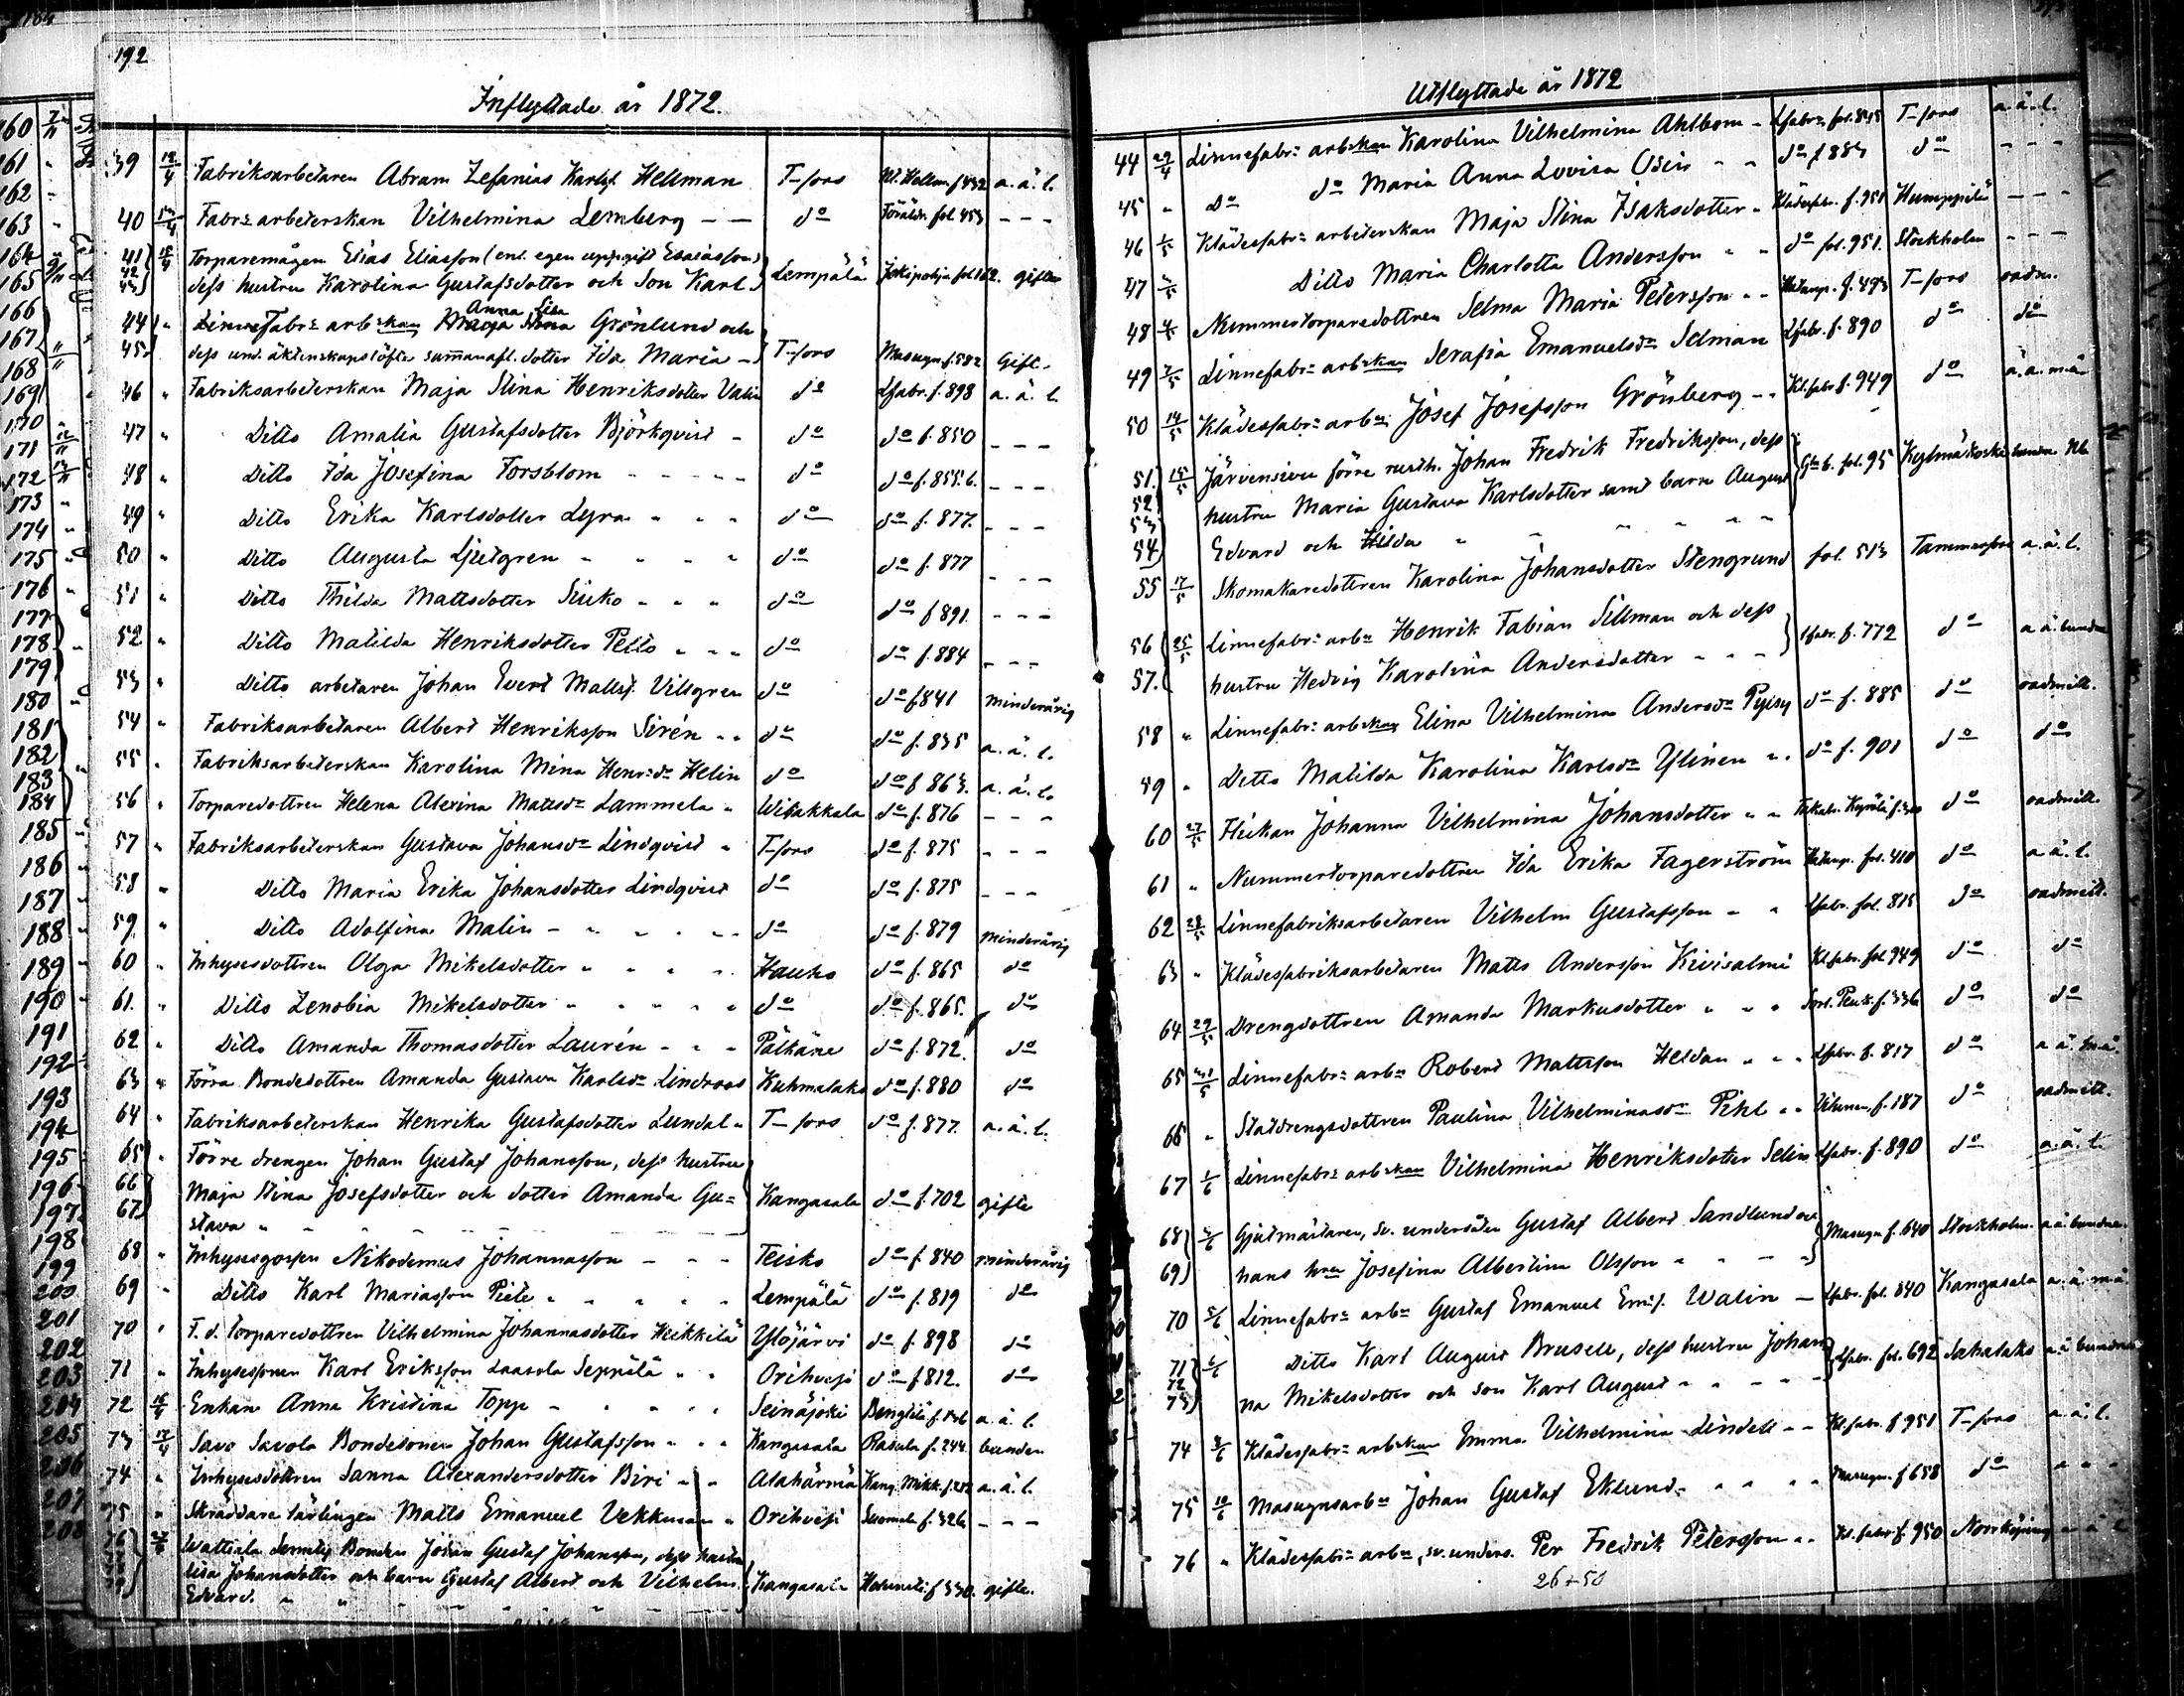 192
Inflyttade år 1872.
39 12/4 Fabriksarbetaren Abram Zefanias Karlsf. Hellman T-fors Kl. Hellm. f 432 a. ä. l.
40 Fabr: arbeterskan Vilhelmina Lemberg — — do Föräldr. fol 453 - - -
41 15/4 Torparemågen Elias Eliasson (enl. egen uppgift Esaiasson)
42 43 dess hustru Karolina Gustafsdotter och Son Karl Lempälä Jokipohja fol 162. gifte
44 " Linnefabr: arbskan Anna Lisa Grönlund och
45 dess und. äktenskapslöfte sammanafl. dotter Ida Maria - T-fors Masugn f. 582 Gift.
46 " Fabriksarbeterskan Maja Stina Henriksdotter Valin do Lfabr. f. 898 a. ä. l.
47 " Ditto Amalia Gustafsdotter Björkqvist - do do f. 850 - - -
48 " Ditto Ida Josefina Forsblom - - - - - do do f. 855. b. - - -
49 " Ditto Erika Karlsdotter Lyra " " " do do f. 877. - - -
50 " Ditto Augusta Ljutgren " " " " do do f. 877 - - -
51 " Ditto Thilda Mattsdotter Siuko " " " do do f 891. - - -
52 " Ditto Matilda Henriksdotter Pello " " " do do f. 884 - - -
53 " Ditto arbetaren Johan Evert Mattsf. Villgren do do f 841 minderårig
54 " Fabriksarbetaren Albert Henriksson Sirén " " do do f. 835 a. ä. l.
55 " Fabriksarbeterskan Karolina Mina Henrsdr Helin do do f 863. a. ä. l.
56 " Torparedottren Helena Alexina Mattsdr Lammela " Wesakkala do f. 876 - - -
57 " Fabriksarbeterskan Gustava Johansdr Lindqvist " T-fors do f. 875 - - -
58 " Ditto Maria Erika Johansdotter Lindqvist do do f. 875 - - -
59. " Ditto Adolfina Malin - " " " " do do f. 879 minderårig
60 " Inhysesdottren Olga Mikelsdotter " " " " Hauho do f. 865 do
61. " Ditto Zenobia Mikelsdotter " " " " " do do f. 865. do
62 " Ditto Amanda Thomasdotter Laurén - " " Pälkäne do f. 872. do
63 " Förra Bondedottren Amanda Gustava Karlsdr Lindroos Kuhmalaks do f. 880 do
64 " Fabriksarbeterskan Henrika Gustafsdotter Lundal " T-fors do f. 877. a. ä. l.
65 " Förre drengen Johan Gustaf Johansson, dess hustru
66 Maja Stina Josefsdotter och dotter Amanda Gu= Kangasala do f. 702 gifte
67 stava " " " " " "
68 " Inhysesgossen Nikodemus Johannasson - - - Teisko do f 840 minderårig
69 " Ditto Karl Mariasson Piete " " " " " Lempälä do f. 819 do
70 " F. d. torparedottren Vilhelmina Johannasdotter Heikkilä Ylöjärvi do f. 898 do
71 " Inhysessonen Karl Eriksson Laasola Seppälä " " Orihvesi do f 812. do
72 16/4 Enkan Anna Kristina Topp - " " " " Seinäjoki Bengtilä f. a. ä. l.
73 17/4 Savo Savola Bondesonen Johan Gustafsson " " " Kangasala Rasula f. 244. bunden
74 " Inhysesdottren Sanna Alexandersdotter Biri " " Alahärmä a. ä. l.
75 " Skräddare lärlingen Matts Emanuel Vekkman " Orihvesi f. 326 - - -
76 Bonden Johan Gustaf Johansson, dess hustru
Lisa Johansdotter och barn Gustaf Albert och Vilhelm Kangasala f 330. gifte.
Edvard. " " " " " "
Utflyttade år 1872
44 29/4 Linnefabr: arbskan Karolina Vilhelmina Ahlbom - Lfabr. fol. 845 T-fors a. ä. l.
45 " Do do Maria Anna Lovisa Osén " " do f 883 do - - -
46 1/5 Klädesfabr: arbeterskan Maja Stina Isaksdotter " Klädesfabr. f. 951 Humppila - - -
47 Ditto Maria Charlotta Andersson " " do fol. 951. Stockholm - - -
48 Nummertorparedottren Selma Maria Petersson " " Hatanp. f. 493 T-fors oadm.
49 7/5 Linnefabr: arbskan Serafia Emanuelsdr Selman Lfabr. f. 890 do do
50 14/5 Klädesfabr: arbn Josef Josefsson Grönberg " " Kl. fabr f. 949 do a. ä. m. ä.
51. 15/5 Järvensivu förre rusth. Johan Fredrik Fredriksson, dess
52 hustru Maria Gustava Karlsdotter samt barn August fol. 95 Kylmäkoski
53 54 Edvard och Hilda " " " " " "
55 17/5 Skomakaredottren Karolina Johansdotter Stengrund fol. 513 Tammerfors a. ä. l.
56 25/5 Linnefabr: arbn Henrik Fabian Sillman och dess
57. hustru Hedvig Karolina Andersdotter " " " Lfabr. f. 772 do a ä. bundna
58 " Linnefabr: arbskan Elina Vilhelmina Andersdr Pyysy do f. 885 do oadmitt.
59 " Ditto Matilda Karolina Karlsdr Ylinen " " do f. 901 do do
60 27/5 Flickan Johanna Vilhelmina Johansdotter " " do oadmitt.
61 " Nummertorparedottren Ida Erika Fagerström Hatanp. fol. 410 do a. ä. l.
62 28/5 Linnefabriksarbetaren Vilhelm Gustafsson " " Lfabr. fol. 815 do oadmitt.
63 " Klädesfabriksarbetaren Matts Andersson Kivisalmi Kl. fabr. fol 949 do do
64 29/5 Drengdottren Amanda Markusdotter " " " f. 336 do do
65 31/5 Linnefabr: arbn Robert Mattsson Heldan " " " Lfabr. f. 817 do a. ä. m. ä.
66 " Statdrengsdottren Paulina Vilhelminasdr Pihl " " f. 187 do oadmitt.
67 1/6 Linnefabr: arbskan Vilhelmina Henriksdotter Selin Lfabr. f. 890 do a. ä. l.
68 3/6 Gjutmästaren, sv. undersåten Gustaf Albert Sandlund och
69 hans hru Josefina Albertina Olsson " " " " Masugn f. 640 Stockholm a ä. bundna
70 5/6 Linnefabr: arbn Gustaf Emanuel Em:f. Walin — Lfabr. fol. 840 Kangasala a. ä. m. ä.
71 72 Ditto Karl August Brusell, dess hustru Johan
73 na Mikelsdotter och son Karl August " " " " Lfabr. fol. 692 Sahalaks a ä bundna
74 Klädesfabr: arbskan Emma Vilhelmina Lindell " " Kl. fabr. f 951 T-fors a. ä. l.
75 10/6 Masugnsarbn Johan Gustaf Eklund " " " " Masugn. f 658 do " " "
76 " Klädesfabr: arbn, sv. unders. Per Fredrik Petersson " " Kl. fabr f. 950 Norrköping
26+50
160
161
162
163
164
165
166
167
168
169
170
171
172
173
174
175
176
177
178
179
180
181
182
183
184
185
186
187
188
189
190
191
192
193
194
195
196
197
198
199
200
201
202
203
204
205
206
207
208